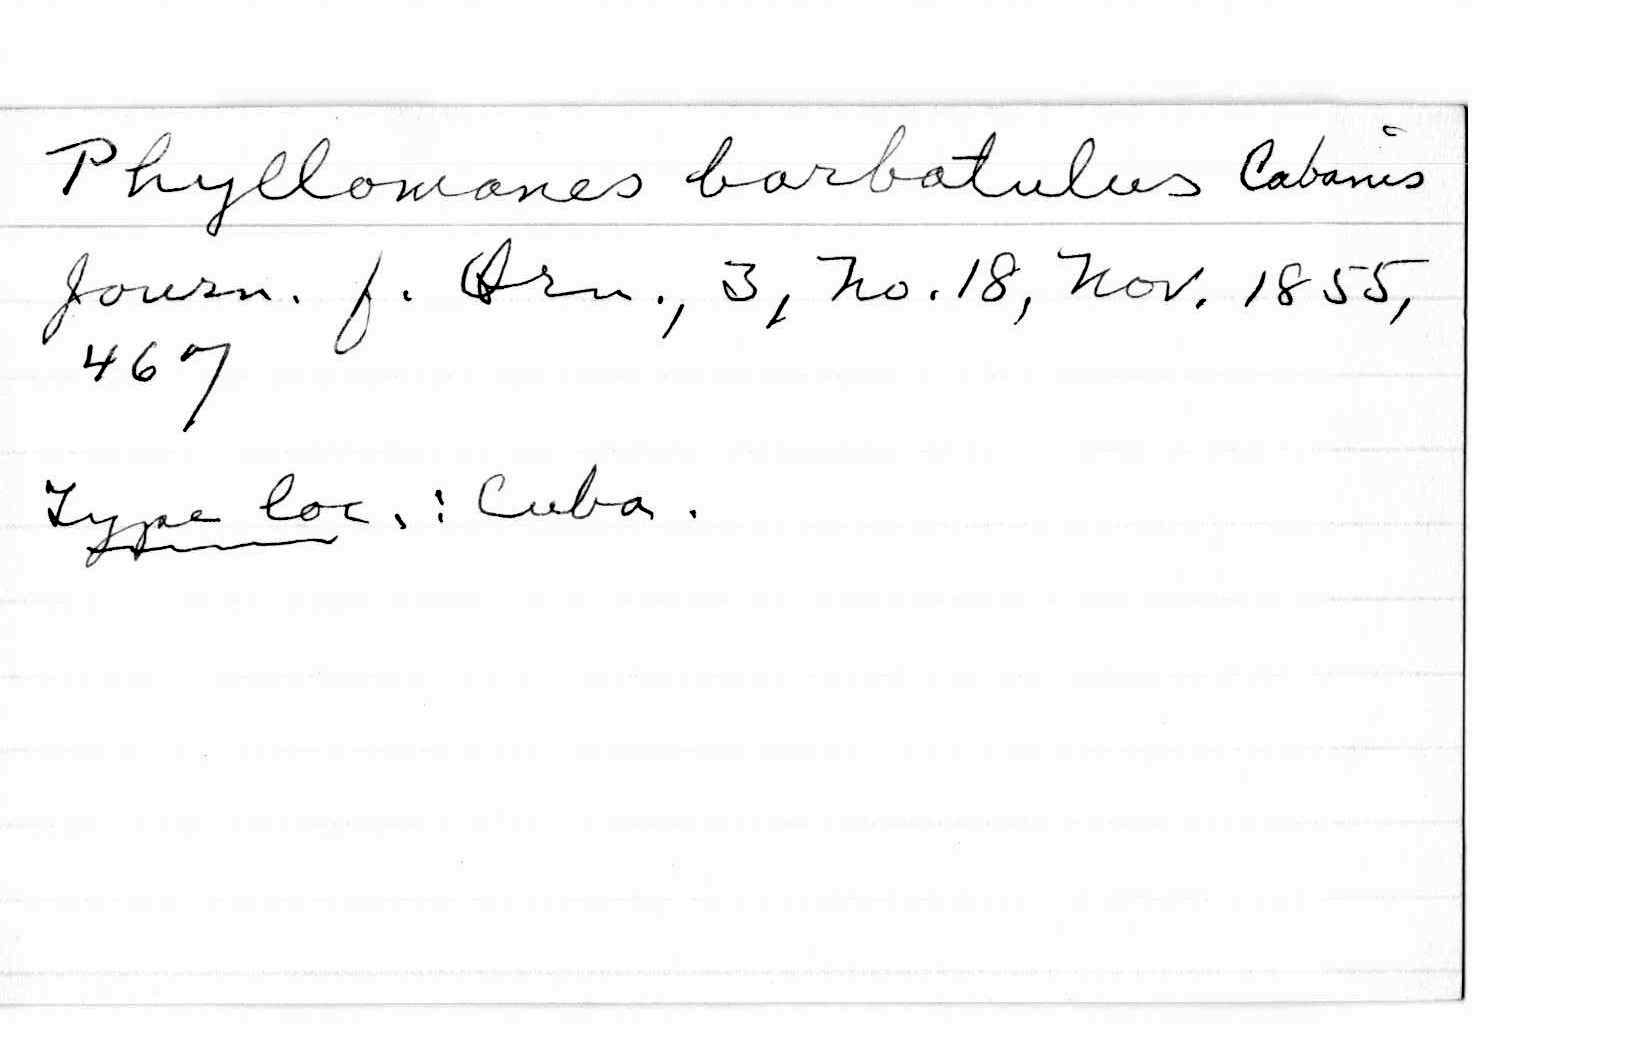 Phyllomanes barbatulus Cabanis
Journ. f. Orn., 3, No. 18, Nov. 1855,
467
Type loc.: Cuba.